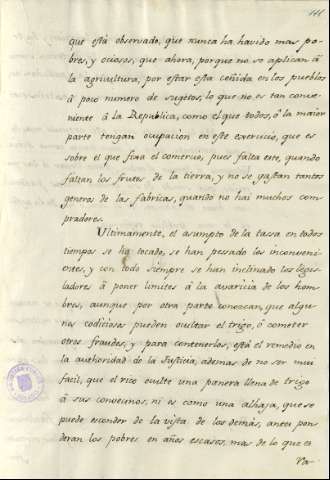 que está observado, que nunca ha havido mas po-
bres, y ociosos, que ahora, porque no se aplican á
la agricultura, por estar esta ceñida en los pueblos
á poco numero de sugetos, lo que no es tan conve-
niente á la Republica, como el que todos, ó la maior
parte tengan ocupacion en este exercicio, que es
sobre el que fixa el comercio, pues falta este, quando
faltan los frutos de la tierra, y no se gastan tantos
generos de las fabricas, quando no hai muchos com-
pradores.
Ultimamente, el asumpto de la tassa en todos
tiempos se ha tocado, se han pesado los inconveni-
entes, y con todo siempre se han inclinado los legis-
ladores á poner limites á la avaricia de los hom-
bres, aunque por otra parte conozcan, que algu-
nos codiciosos pueden ocultar el trigo, ó cometer
otros fraudes, y para contenerlos, está el remedio en
la authoridad de la Justicia, ademas de no ser mui
facil, que el rico oculte una panera llena de trigo
á sus convecinos, ni es como una alhaja, que se
puede esconder de la vista de los demás, antes pon-
deran los pobres en años escasos, mas de lo que es